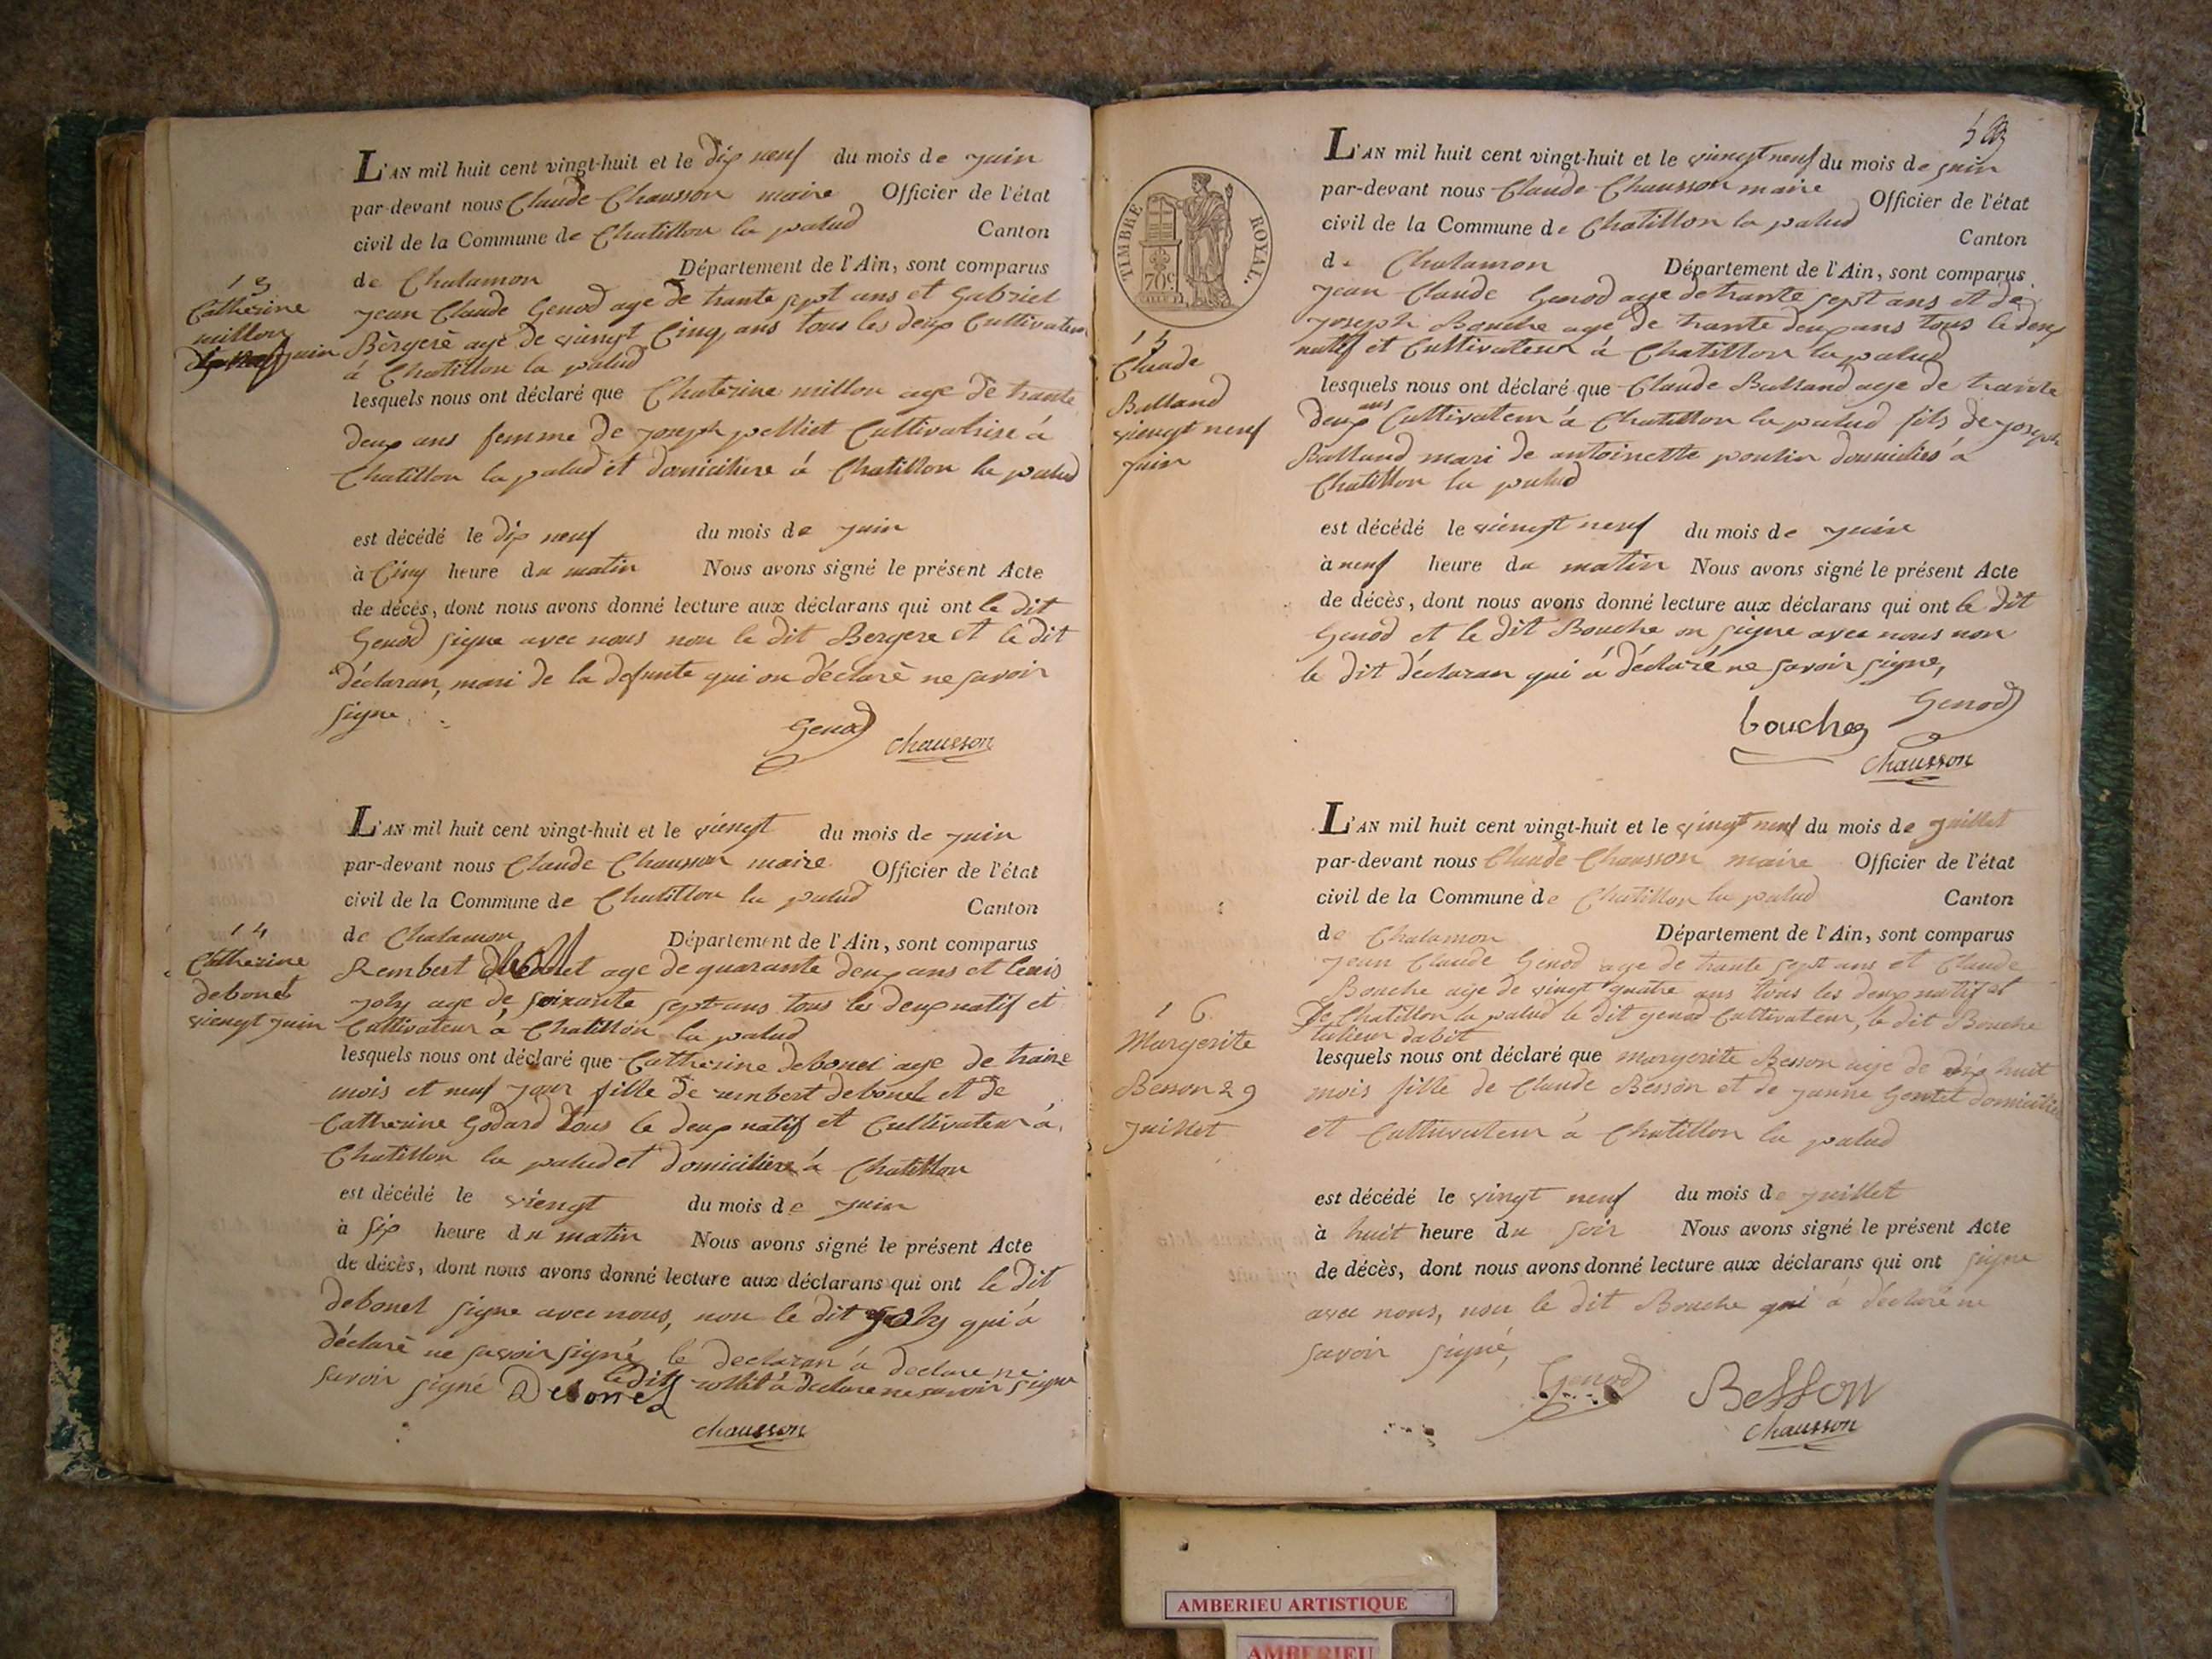 L'AN mil huit cent vingt-huit et le dix neuf du mois de juin
par-devant nous Claude Chausson maire Officier de l'état
civil de la Commune de Chatillon la palud Canton
de Chalamon Département de l'Ain, sont comparus
jean Claude Genod age de trante sept ans et Gabriel
Bergere age de viengt Cinq ans tous les deux Cultivateur
à Chatillon la palud
lesquels nous ont déclaré que Chaterine millon age de trante
deux ans femme de joseph pelliet Cultivatrise à
Chatillon la palud et domiciliere à Chatillon la palud
est décédé le dix neuf du mois de juin
à Cinq heure du matin Nous avons signé le présent Acte
de décès, dont nous avons donné lecture aux déclarans qui ont le dit
Genod signe avec nous non le dit Bergere et le dit
déclaran, mari de la defunte qui on déclaré ne savoir
signe
Genod
chausson
13
Catherine
millon
juin
L'AN mil huit cent vingt-huit et le viengt du mois de juin
par-devant nous Claude Chausson maire Officier de l'état
civil de la Commune de Chatillon la palud Canton
de Chalamon Département de l'Ain, sont comparus
Rembert debonet age de quarante deux ans et
joly age de soixante sept ans tous les deux natif et
Cultivateur à Chatillon la palud
lesquels nous ont déclaré que Catherine debonel age de traize
mois et neuf jour fille de rembert debonel et de
Catherine Godard tous le deux natif et Cultivateur à
Chatillon la palud et domiciliere à Chatillon
est décédé le viengt du mois de juin
à six heure du matin Nous avons signé le présent Acte
de décès, dont nous avons donné lecture aux déclarans qui ont le dit
debonel signe avec nous, non le dit joly qui à
déclaré ne savoir signé le declaran à declare ne
savoir signé le dit à declare ne savoir signe
Debonel
chausson
14
Catherine
debonet
viengt juin
TIMBRE ROYAL.
70c
L'AN mil huit cent vingt-huit et le viengt neuf du mois de juin
par-devant nous Claude Chausson maire Officier de l'état
civil de la Commune de Chatillon la palud Canton
de Chalamon Département de l'Ain, sont comparus
jean Claude Genod age de trante sept ans et de
joseph Bouche age de trante deux ans tous le deux
natif et Cultivateur à Chatillon la palud
lesquels nous ont déclaré que Claude Balland age de trante
deux ans Cultivateur à Chatillon la palud fils de joseph
Balland mari de antoinette poulin domiciliés à
Chatillon la palud
est décédé le viengt neuf du mois de juin
à neuf heure du matin Nous avons signé le présent Acte
de décès, dont nous avons donné lecture aux déclarans qui ont le dit
Genod et le dit Bouche on signe avec nous non
le dit déclaran qui à déclaré ne savoir signe,
Genod
bouche
chausson
15
Claude
Balland
viengt neuf
juin
L'AN mil huit cent vingt-huit et le vingt neuf du mois de juillet
par-devant nous Claude Chausson maire Officier de l'état
civil de la Commune de Chatillon la palud Canton
de Chalamon Département de l'Ain, sont comparus
jean Claude Genod age de trante sept ans et Claude
Bouche age de vingt quatre ans tous les deux natif et
De Chatillon la palud le dit genod Cultivateur, le dit Bouche
talieur dabit
lesquels nous ont déclaré que margerite Besson age de dix huit
mois fille de Claude Besson et de janne Gentet domicilié
et Cultivateur à Chatillon la palud
est décédé le vingt neuf du mois de juillet
à huit heure du soir Nous avons signé le présent Acte
de décès, dont nous avons donné lecture aux déclarans qui ont signe
avec nous, non le dit Bouche qui à déclaré ne
savoir signé,
Genod
Besson
chausson
16
Margerite
Besson 29
juillet
AMBERIEU ARTISTIQUE
AMBERIEU